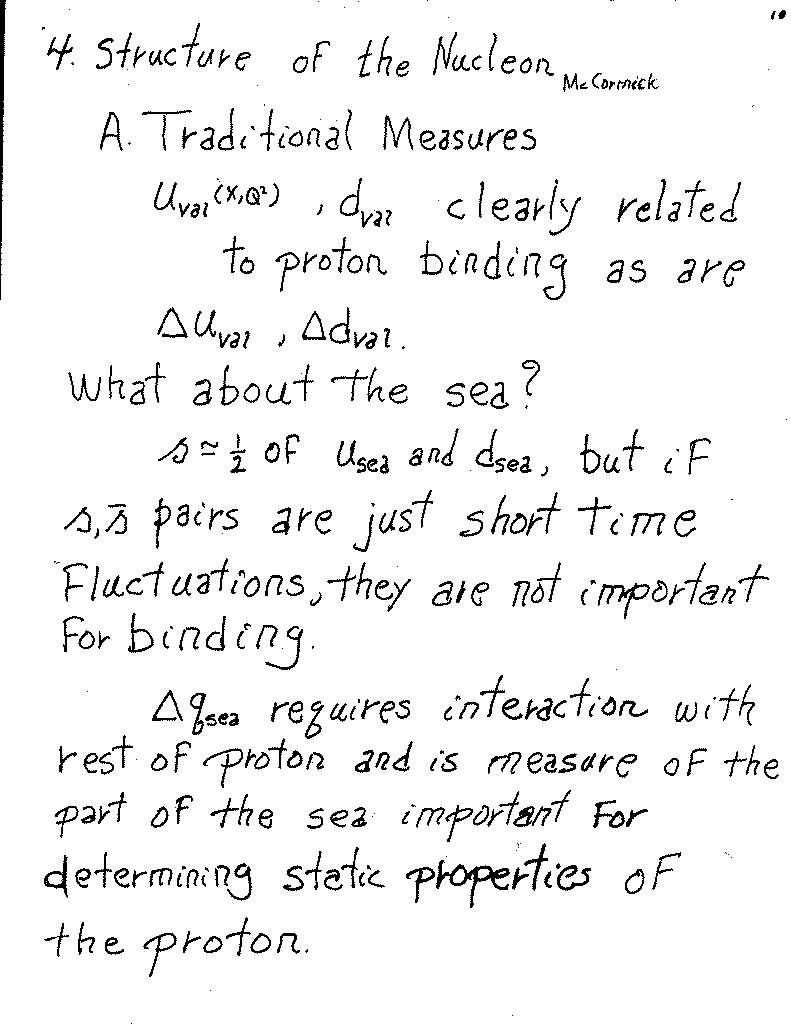 10
4. Structure of the Nucleon McCormick
A. Traditional Measures
u_val(x,Q²), d_val clearly related
to proton binding as are
Δu_val, Δd_val.
What about the sea?
s ≃ ½ of u_sea and d_sea, but if
s, s̄ pairs are just short time
Fluctuations, they are not important
for binding.
Δq_sea requires interaction with
rest of proton and is measure of the
part of the sea important for
determining static properties of
the proton.